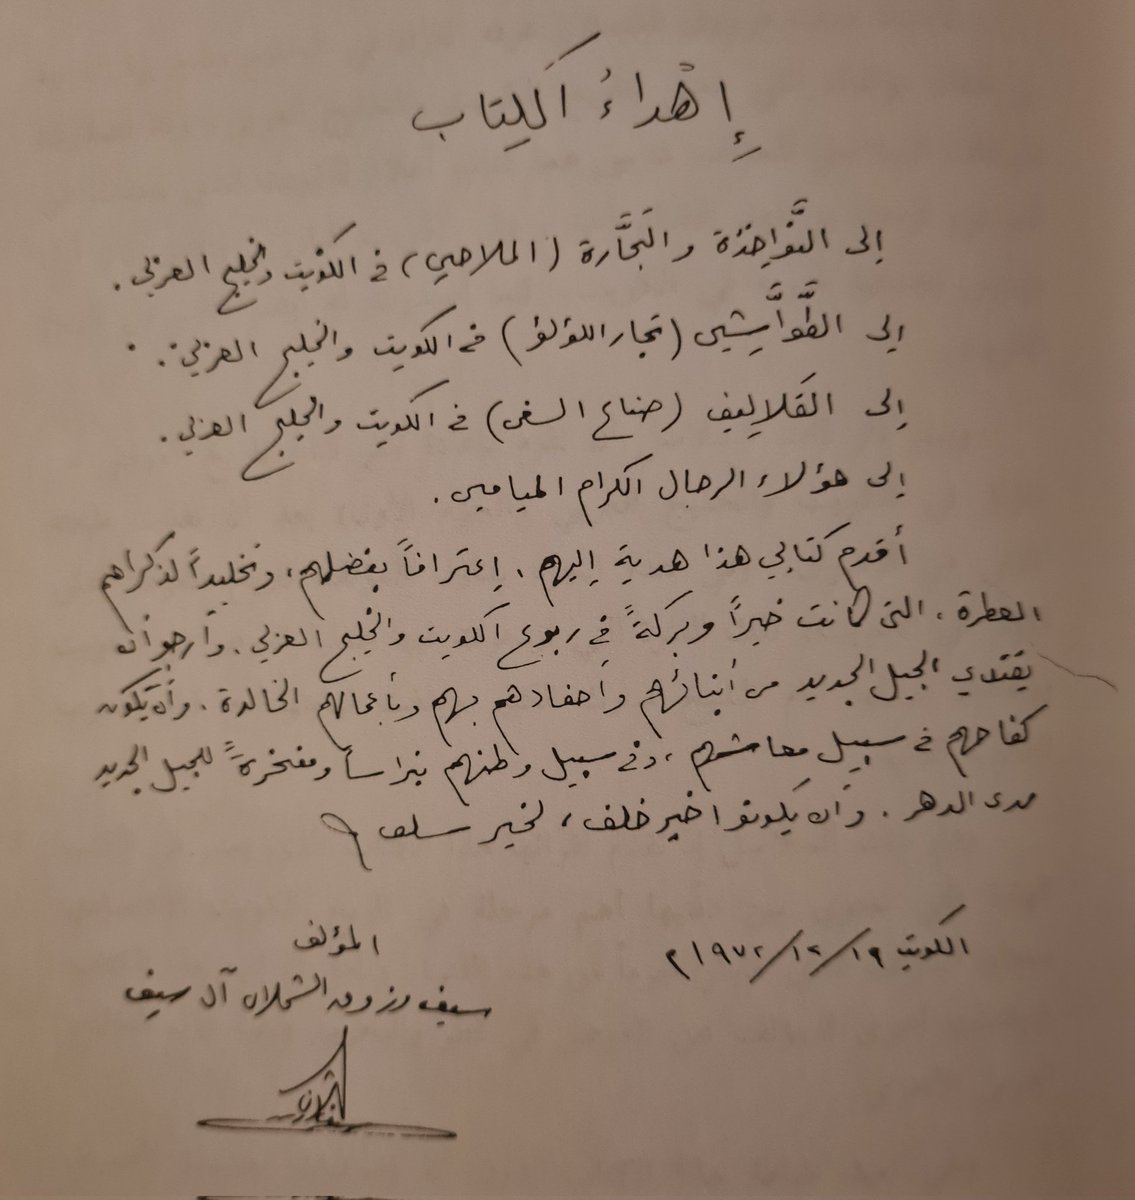 إِهْداءُ الكِتاب
إلى النَّواخِذَة والبَحَّارة (الملاحين) في الكويت والخليج العربي.
إلى الطَّوَّاشِين (تجار اللؤلؤ) في الكويت والخليج العربي.
إلى القَلالِيف (صناع السفن) في الكويت والخليج العربي.
إلى هؤلاء الرجال الكرام الميامين.
أقدم كتابي هذا هدية إليهم، إعترافاً بفضلهم، وتخليداً لذكراهم
العطرة، التي كانت خيراً وبركةً في ربوع الكويت والخليج العربي. وأرجو أن
يقتدي الجيل الجديد من أبنائهم وأحفادهم بهم وبأعمالهم الخالدة. وأن يكون
كفاحهم في سبيل معاشهم، وفي سبيل وطنهم نبراساً ومفخرةً للجيل الجديد
مدى الدهر. وأن يكونوا خير خلف، لخير سلف
الكويت ١٩/١٢/١٩٧٢م
المؤلف
سيف مرزوق الشملان آل سيف